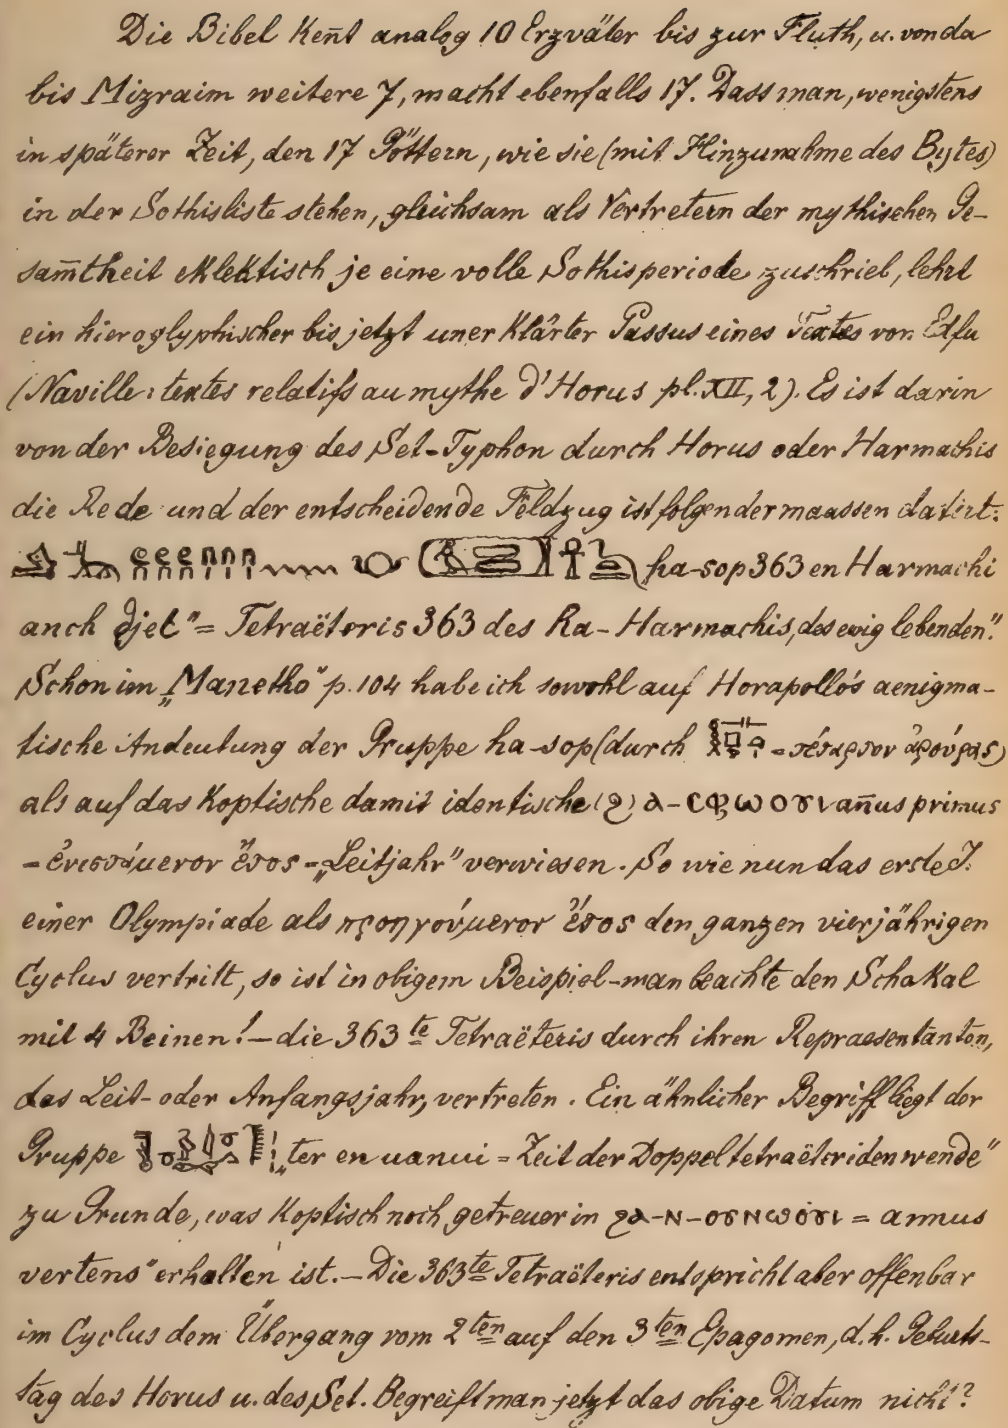 Die Bibel keñt analog 10 Erzväter bis zur Fluth, u. von da
bis Mizraim weitere 7, macht ebenfalls 17. Dass man, wenigstens
in späterer Zeit, den 17 Göttern, wie sie (mit Hinzunahme des Bytes)
in der Sothisliste stehen, gleichsam als Vertretern der mythischen Ge-
sam̃theit eklektisch je eine volle Sothisperiode zuschrieb, lehrt
ein hieroglyphischer bis jetzt unerklärter Passus eines Textes von Edfu
(Naville: textes relatifs au mythe d'Horus pl. XII, 2). Es ist darin
von der Besiegung des Set-Typhon durch Horus oder Harmachis
die Rede und der entscheidende Feldzug ist folgendermaassen datirt:
ha-sop 363 en Harmachi
anch djet" = Tetraëteris 363 des Ra-Harmachis, des ewig lebenden".
Schon im „Manetho" p. 104 habe ich sowohl auf Horapollo's aenigma-
tische Andeutung der Gruppe ha-sop (durch = τέταρτον ἀρούρας)
als auf das Koptische damit identische (ϩ)ⲁ-ⲥⲫⲱⲟⲩⲓ añus primus
= ἐνιστάμενον ἔτος = „Leitjahr" verwiesen. So wie nun das erste J.
einer Olympiade als προηγούμενον ἔτος den ganzen vierjährigen
Cyclus vertritt, so ist in obigem Beispiel - man beachte den Schakal
mit 4 Beinen! - die 363te Tetraëteris durch ihren Repraesentanten,
das Leit- oder Anfangsjahr, vertreten. Ein ähnlicher Begriff liegt der
Gruppe „ter en uanui = Zeit der Doppeltetraëteridenwende"
zu Grunde, was Koptisch noch getreuer in ϩⲁ-ⲛ-ⲟⲩⲛⲱⲟⲩⲓ = annus
vertens" erhalten ist. - Die 363te Tetraëteris entspricht aber offenbar
im Cyclus dem Übergang vom 2ten auf den 3ten Epagomen, d. h. Geburts-
tag des Horus u. des Set. Begreift man jetzt das obige Datum nicht?